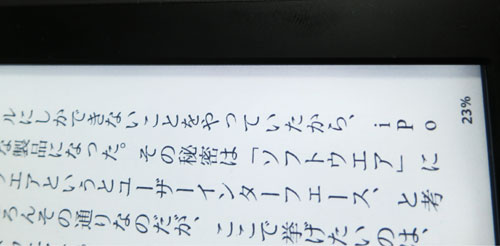 ルにしかできないことをやっていたから、iPo
な製品になった。その秘密は「ソフトウエア」に
ウエアというとユーザーインターフェース、と考
ろんその通りなのだが、ここで挙げたいのは、
23%